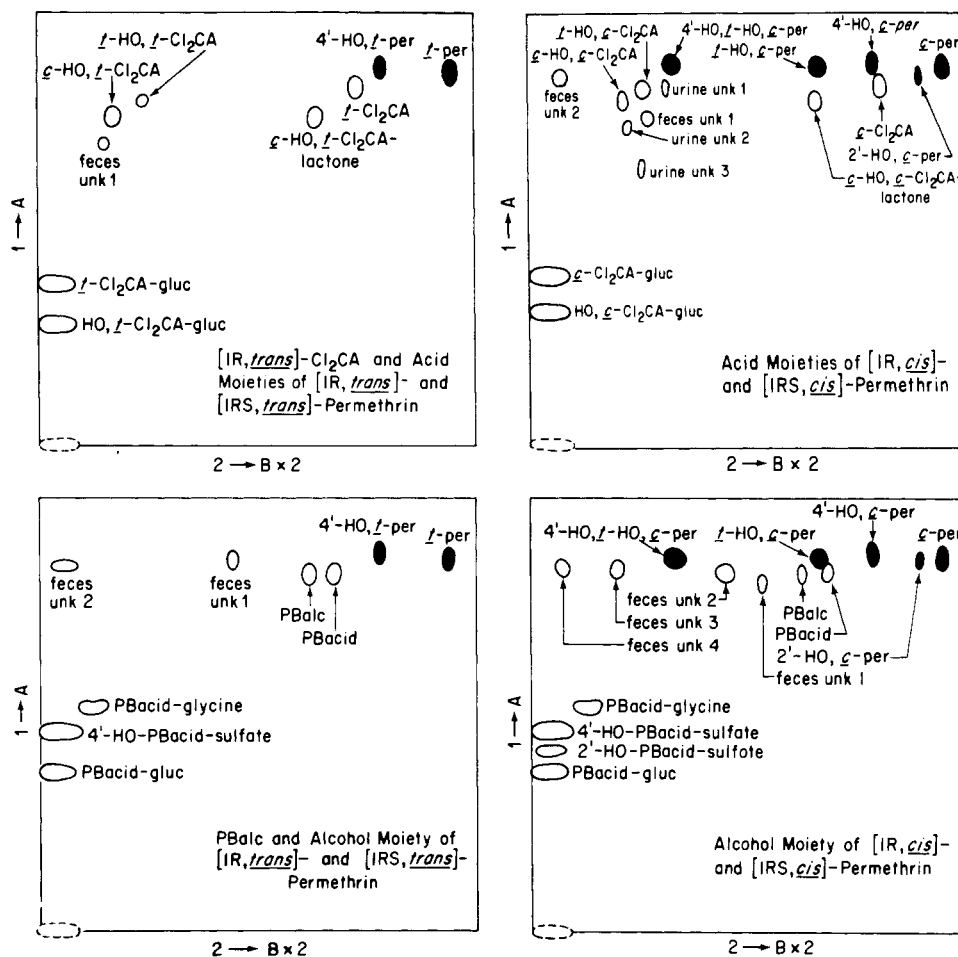 t-HO, t-Cl2CA
c-HO, t-Cl2CA
4'-HO, t-per
t-per
feces
unk 1
t-Cl2CA
c-HO, t-Cl2CA-
lactone
t-Cl2CA-gluc
HO, t-Cl2CA-gluc
[IR, trans]-Cl2CA and Acid
Moieties of [IR, trans]- and
[IRS, trans]-Permethrin
1 → A
2 → B x 2
t-HO, c-Cl2CA
c-HO, c-Cl2CA
4'-HO, t-HO, c-per
t-HO, c-per
4'-HO, c-per
c-per
feces
unk 2
urine unk 1
feces unk 1
urine unk 2
urine unk 3
c-Cl2CA
2'-HO, c-per
c-HO, c-Cl2CA-
lactone
c-Cl2CA-gluc
HO, c-Cl2CA-gluc
Acid Moieties of [IR, cis]-
and [IRS, cis]-Permethrin
1 → A
2 → B x 2
4'-HO, t-per
t-per
feces
unk 2
feces
unk 1
PBalc
PBacid
PBacid-glycine
4'-HO-PBacid-sulfate
PBacid-gluc
PBalc and Alcohol Moiety of
[IR, trans]- and [IRS, trans]-
Permethrin
1 → A
2 → B x 2
4'-HO, c-per
4'-HO, t-HO, c-per
t-HO, c-per
c-per
feces unk 2
feces unk 3
feces unk 4
PBalc
PBacid
2'-HO, c-per
feces unk 1
PBacid-glycine
4'-HO-PBacid-sulfate
2'-HO-PBacid-sulfote
PBacid-gluc
Alcohol Moiety of [IR, cis]-
and [IRS, cis]-Permethrin
1 → A
2 → B x 2